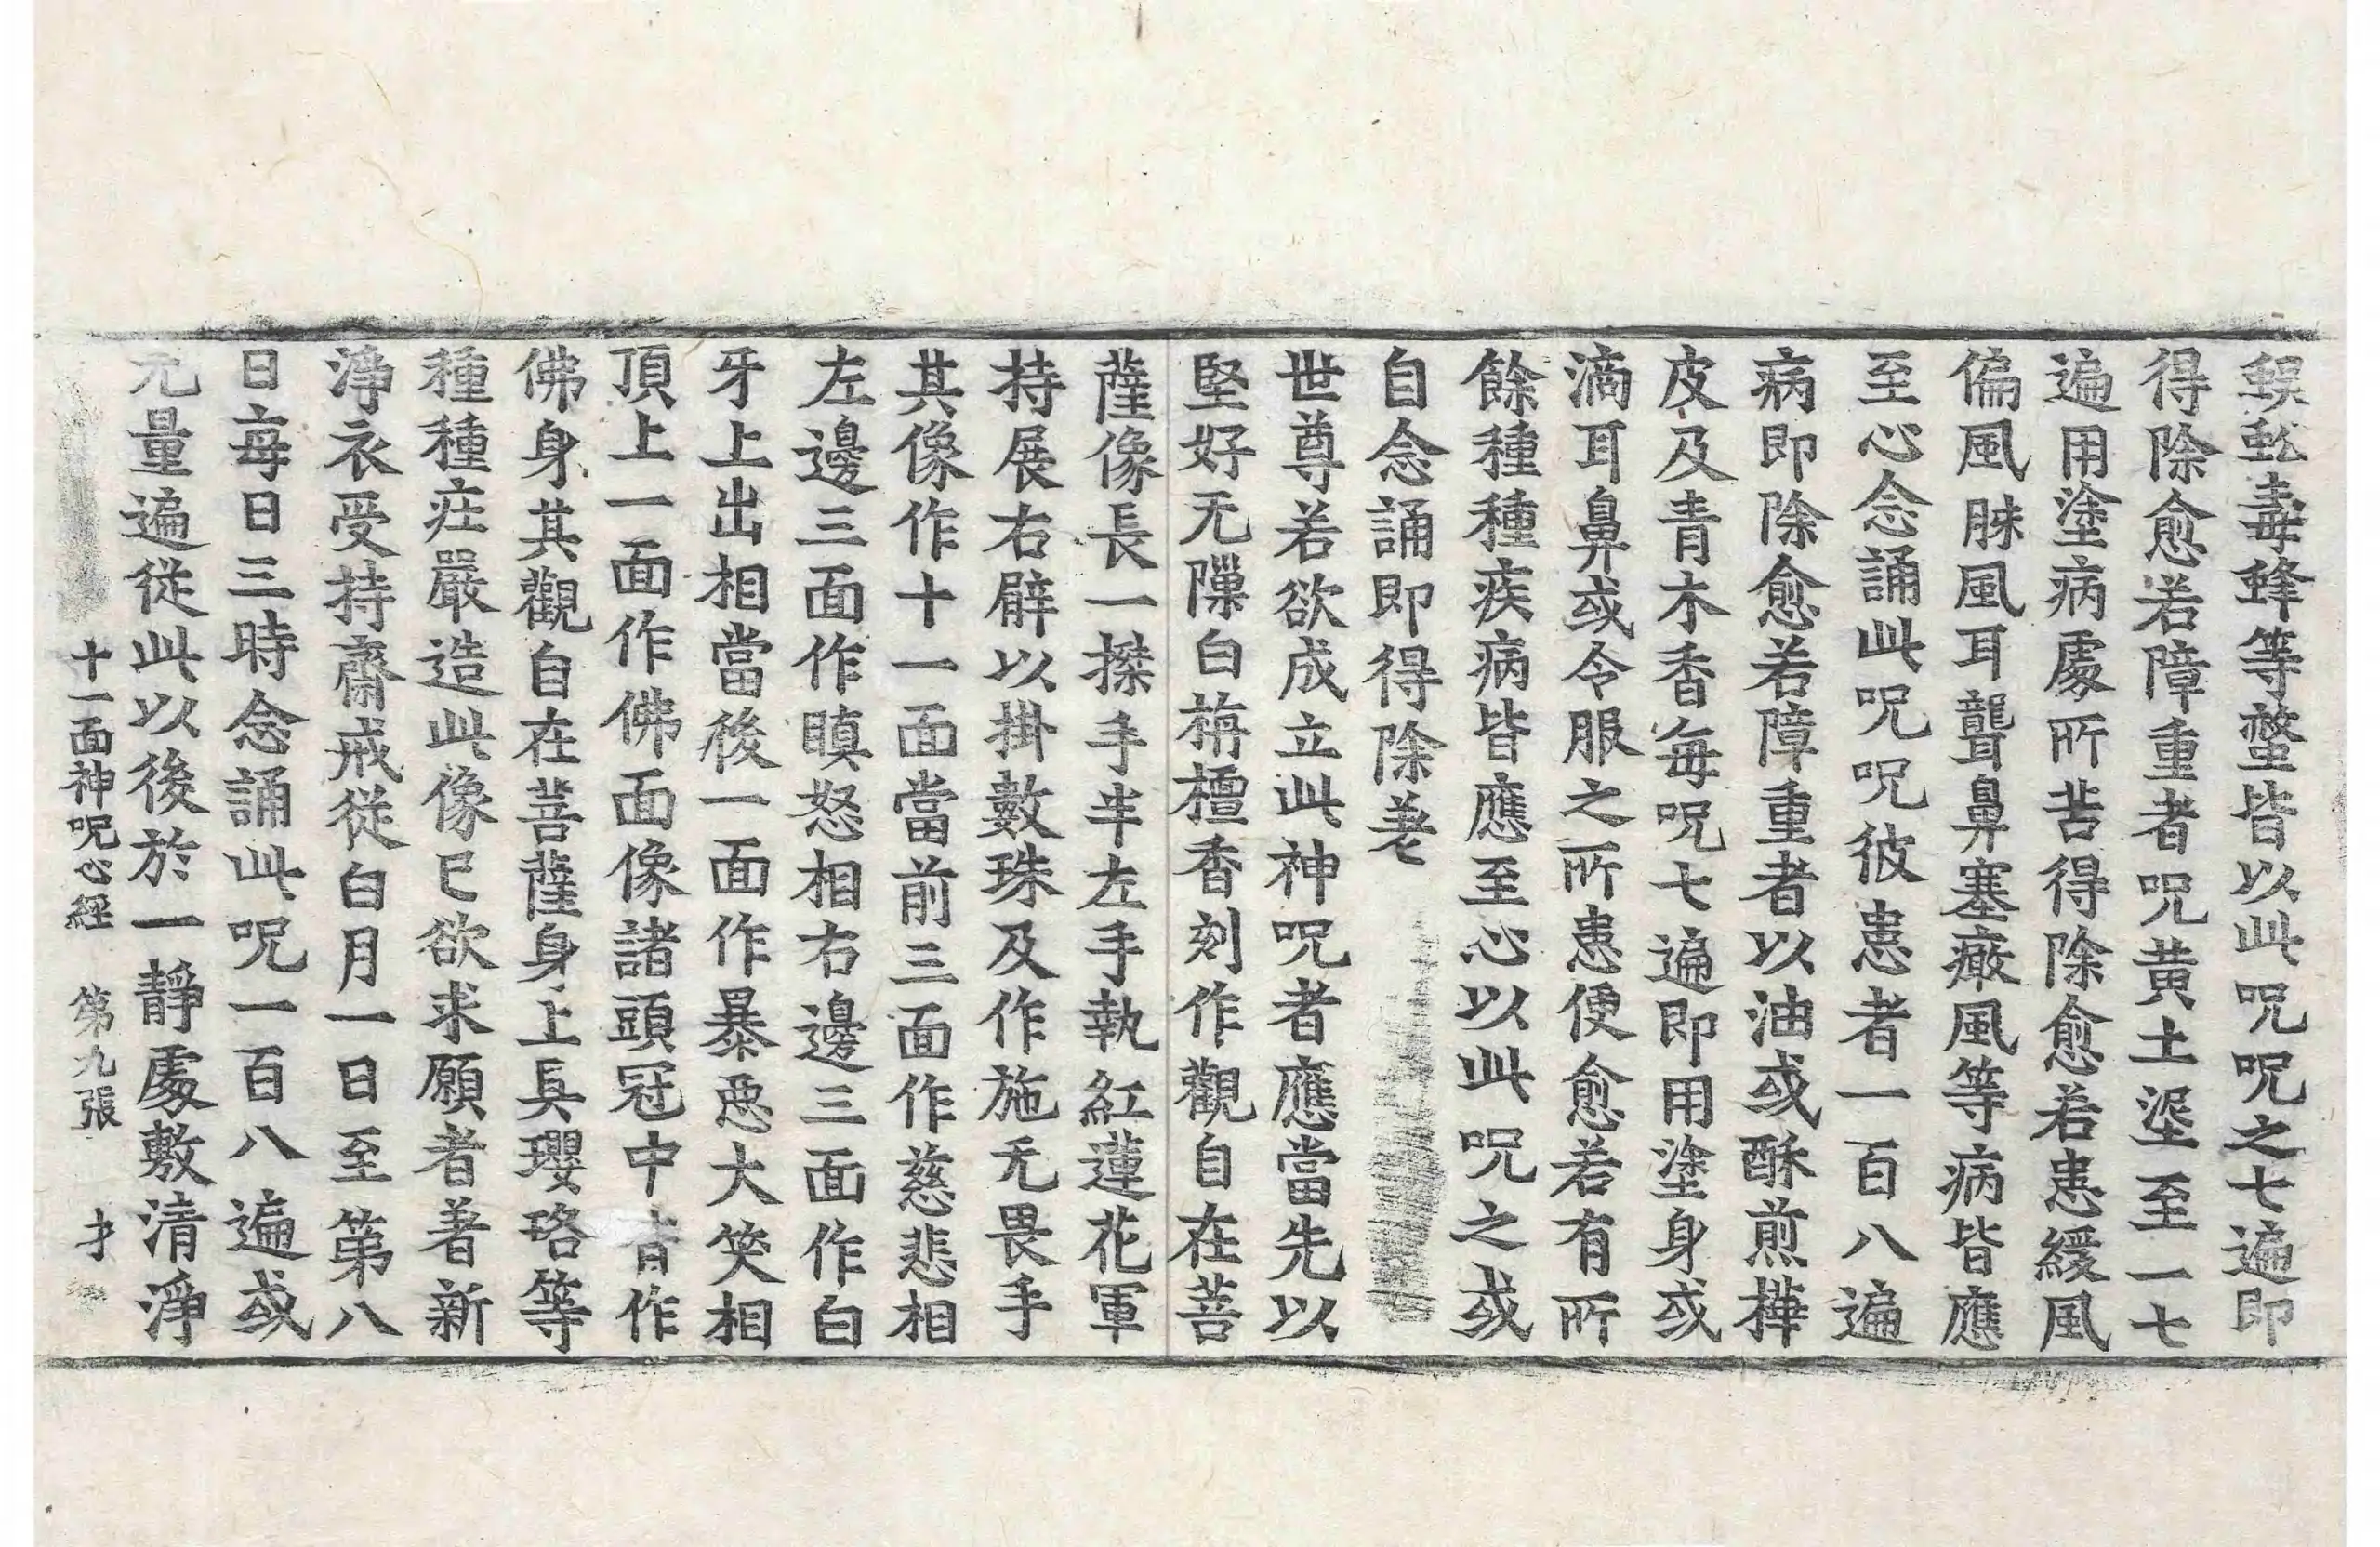 蜈蚣毒蜂等螫皆以此呪呪之七遍即
得除愈若障重者呪黃土埿至一七
遍用塗病處所苦得除愈若患緩風
偏風脒風耳聾鼻塞癥風等病皆應
至心念誦此呪呪彼患者一百八遍
病即除愈若障重者以油或酥煎樺
皮及青木香每呪七遍即用塗身或
滴耳鼻或令服之所患便愈若有所
餘種種疾病皆應至心以此呪之或
自念誦即得除差
世尊若欲成立此神呪者應當先以
堅好无隟白栴檀香刻作觀自在菩
薩像長一搩手半左手執紅蓮花軍
持展右臂以掛數珠及作施无畏手
其像作十一面當前三面作慈悲相
左邊三面作瞋怒相右邊三面作白
牙上出相當後一面作暴惡大笑相
頂上一面作佛面像諸頭冠中皆作
佛身其觀自在菩薩身上具瓔珞等
種種莊嚴造此像已欲求願者著新
淨衣受持齋戒從白月一日至第八
日每日三時念誦此呪一百八遍或
无量遍從此以後於一靜處敷清淨
十一面神呪心經 第九張 才